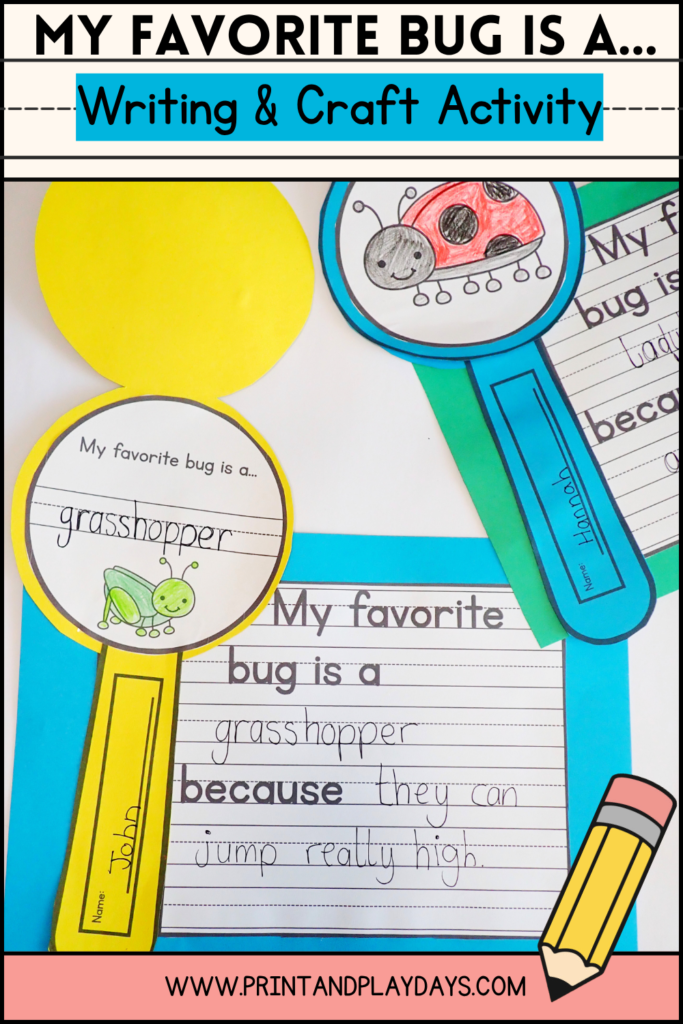 MY FAVORITE BUG IS A...
Writing & Craft Activity
My favorite bug is a...
grasshopper
Name: John
My favorite
bug is a
grasshopper
because they can
jump really high.
Name: Hannah
My f
bug is
Lady
beca
WWW.PRINTANDPLAYDAYS.COM